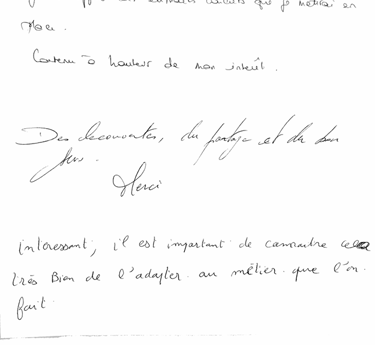 que je mettrai en
place.
Contenu à hauteur de mon intérêt.
Des découvertes, du partage et du bon
sens.
Merci
interessant, il est important de connaitre
très Bien de l'adapter au métier que l'on
fait